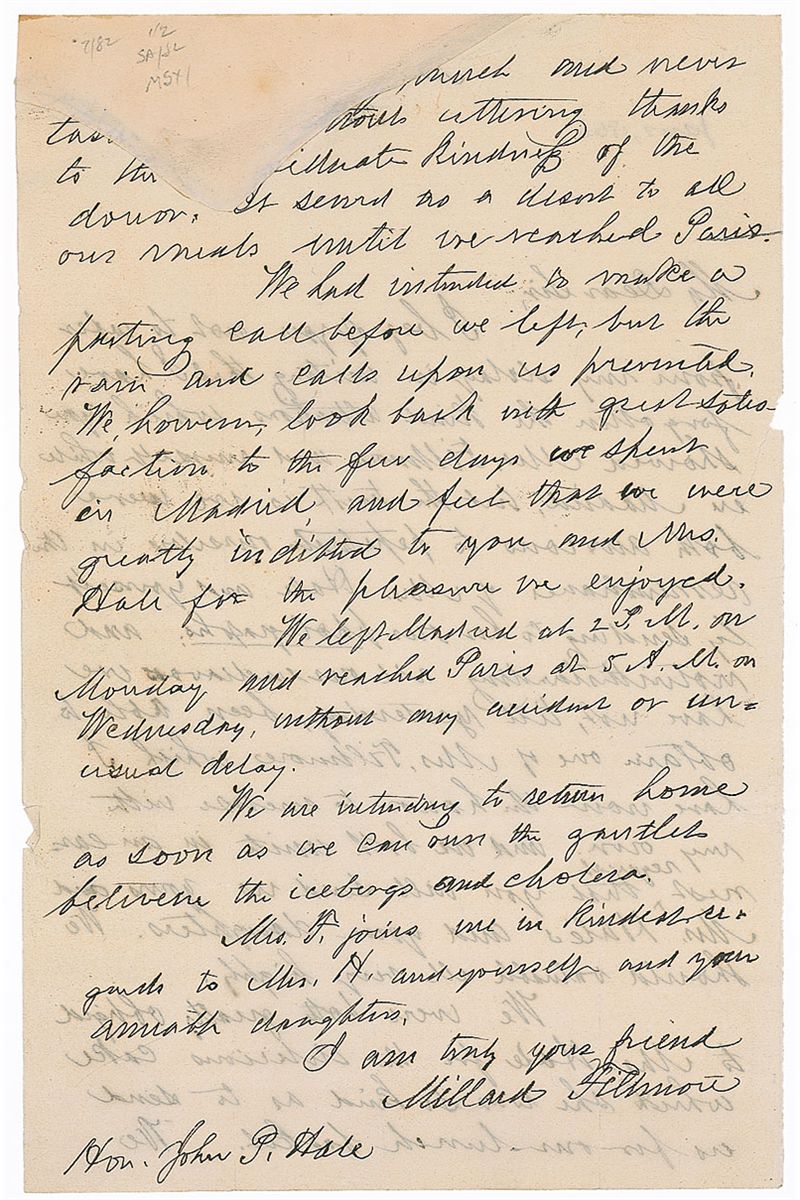 7/82 1/2
SA/SL
MSY1
much and never
without uttering thanks
to the kindness of the
donor. It served as a desert to all
our meals until we reached Paris.
We had intended to make a
parting call before we left, but the
rain and calls upon us prevented.
We, however, look back with great satis-
faction to the few days we spent
in Madrid, and feel that we were
greatly indebted to you and Mrs.
Hale for the pleasure we enjoyed.
We left Madrid at 2 P.M. on
Monday and reached Paris at 5 A.M. on
Wednesday, without any accident or un=
usual delay.
We are intending to return home
as soon as we can run the gantlet
between the icebergs and cholera.
Mrs. F. joins me in kindest re=
gards to Mrs. H. and yourself and your
amiable daughters.
I am truly your friend
Millard Fillmore
Hon. John P. Hale